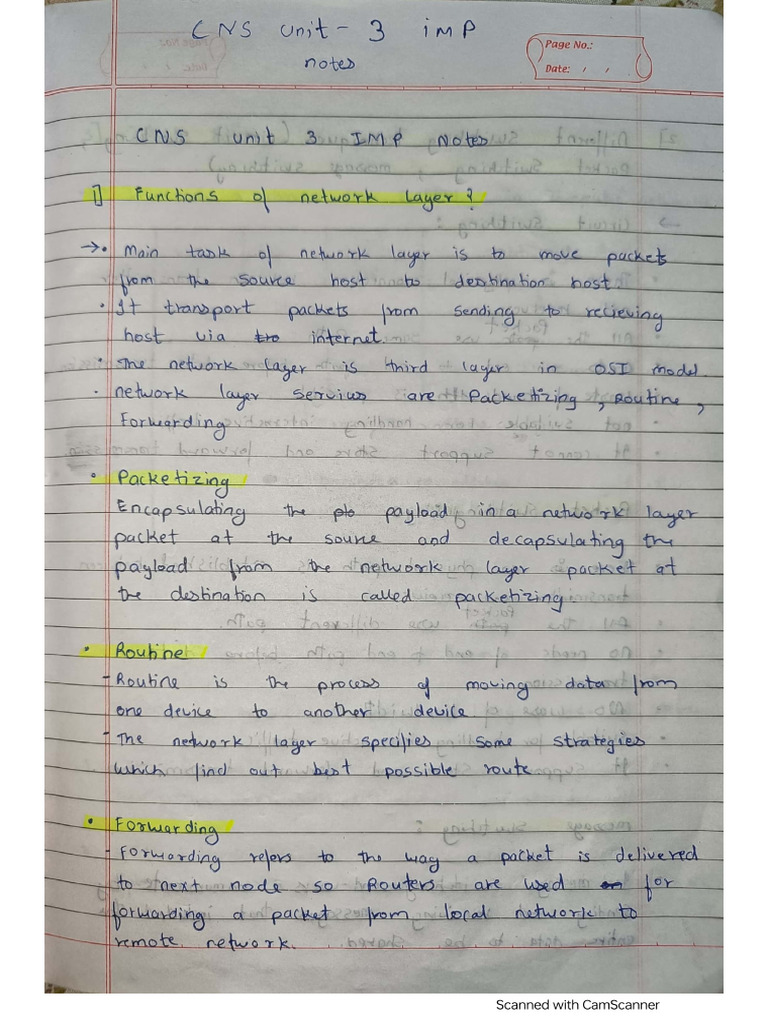 CNS unit - 3 imp
notes
Page No.:
Date: / /
CNS unit 3 IMP Notes
1] Functions of network layer?
→ • Main task of network layer is to move packets
from the source host to destination host
• It transport packets from sending to recieving
host via internet.
• The network layer is third layer in OSI model.
• network layer servius are Packetizing, Routine,
Forwarding
• Packetizing
Encapsulating the payload in a network layer
packet at the source and decapsulating the
payload from the network layer packet at
the destination is called packetizing
• Routine
- Routine is the process of moving data from
one device to another device
- The network layer specifies some strategies
which find out best possible route
• Forwarding
- Forwarding refers to the way a packet is delivered
to next node so Routers are used for
forwarding a packet from local network to
remote network.
Scanned with CamScanner